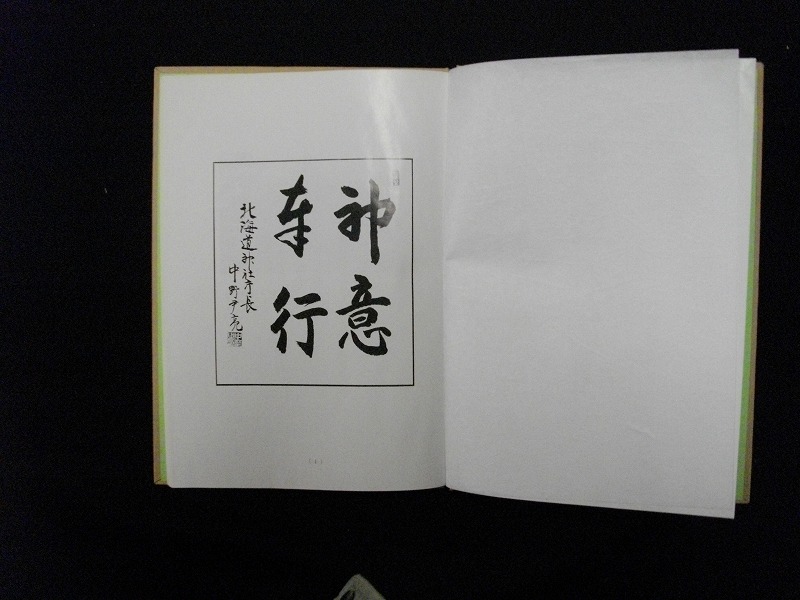 神意
奉行
北海道神社庁長
中野